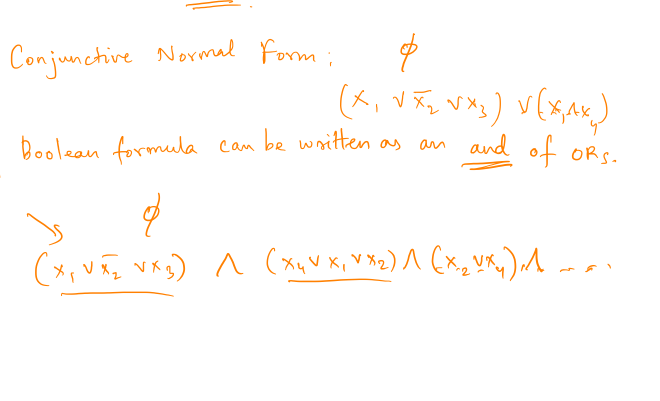 Conjunctive Normal Form; ϕ
(x₁ ∨ x̅₂ ∨ x₃) ∨ (x₁ ∧ x₄)
Boolean formula can be written as an and of ORs.
ϕ
(x₁ ∨ x̅₂ ∨ x₃) ∧ (x₄ ∨ x₁ ∨ x₂) ∧ (x₂ ∨ x₄) ∧ ....